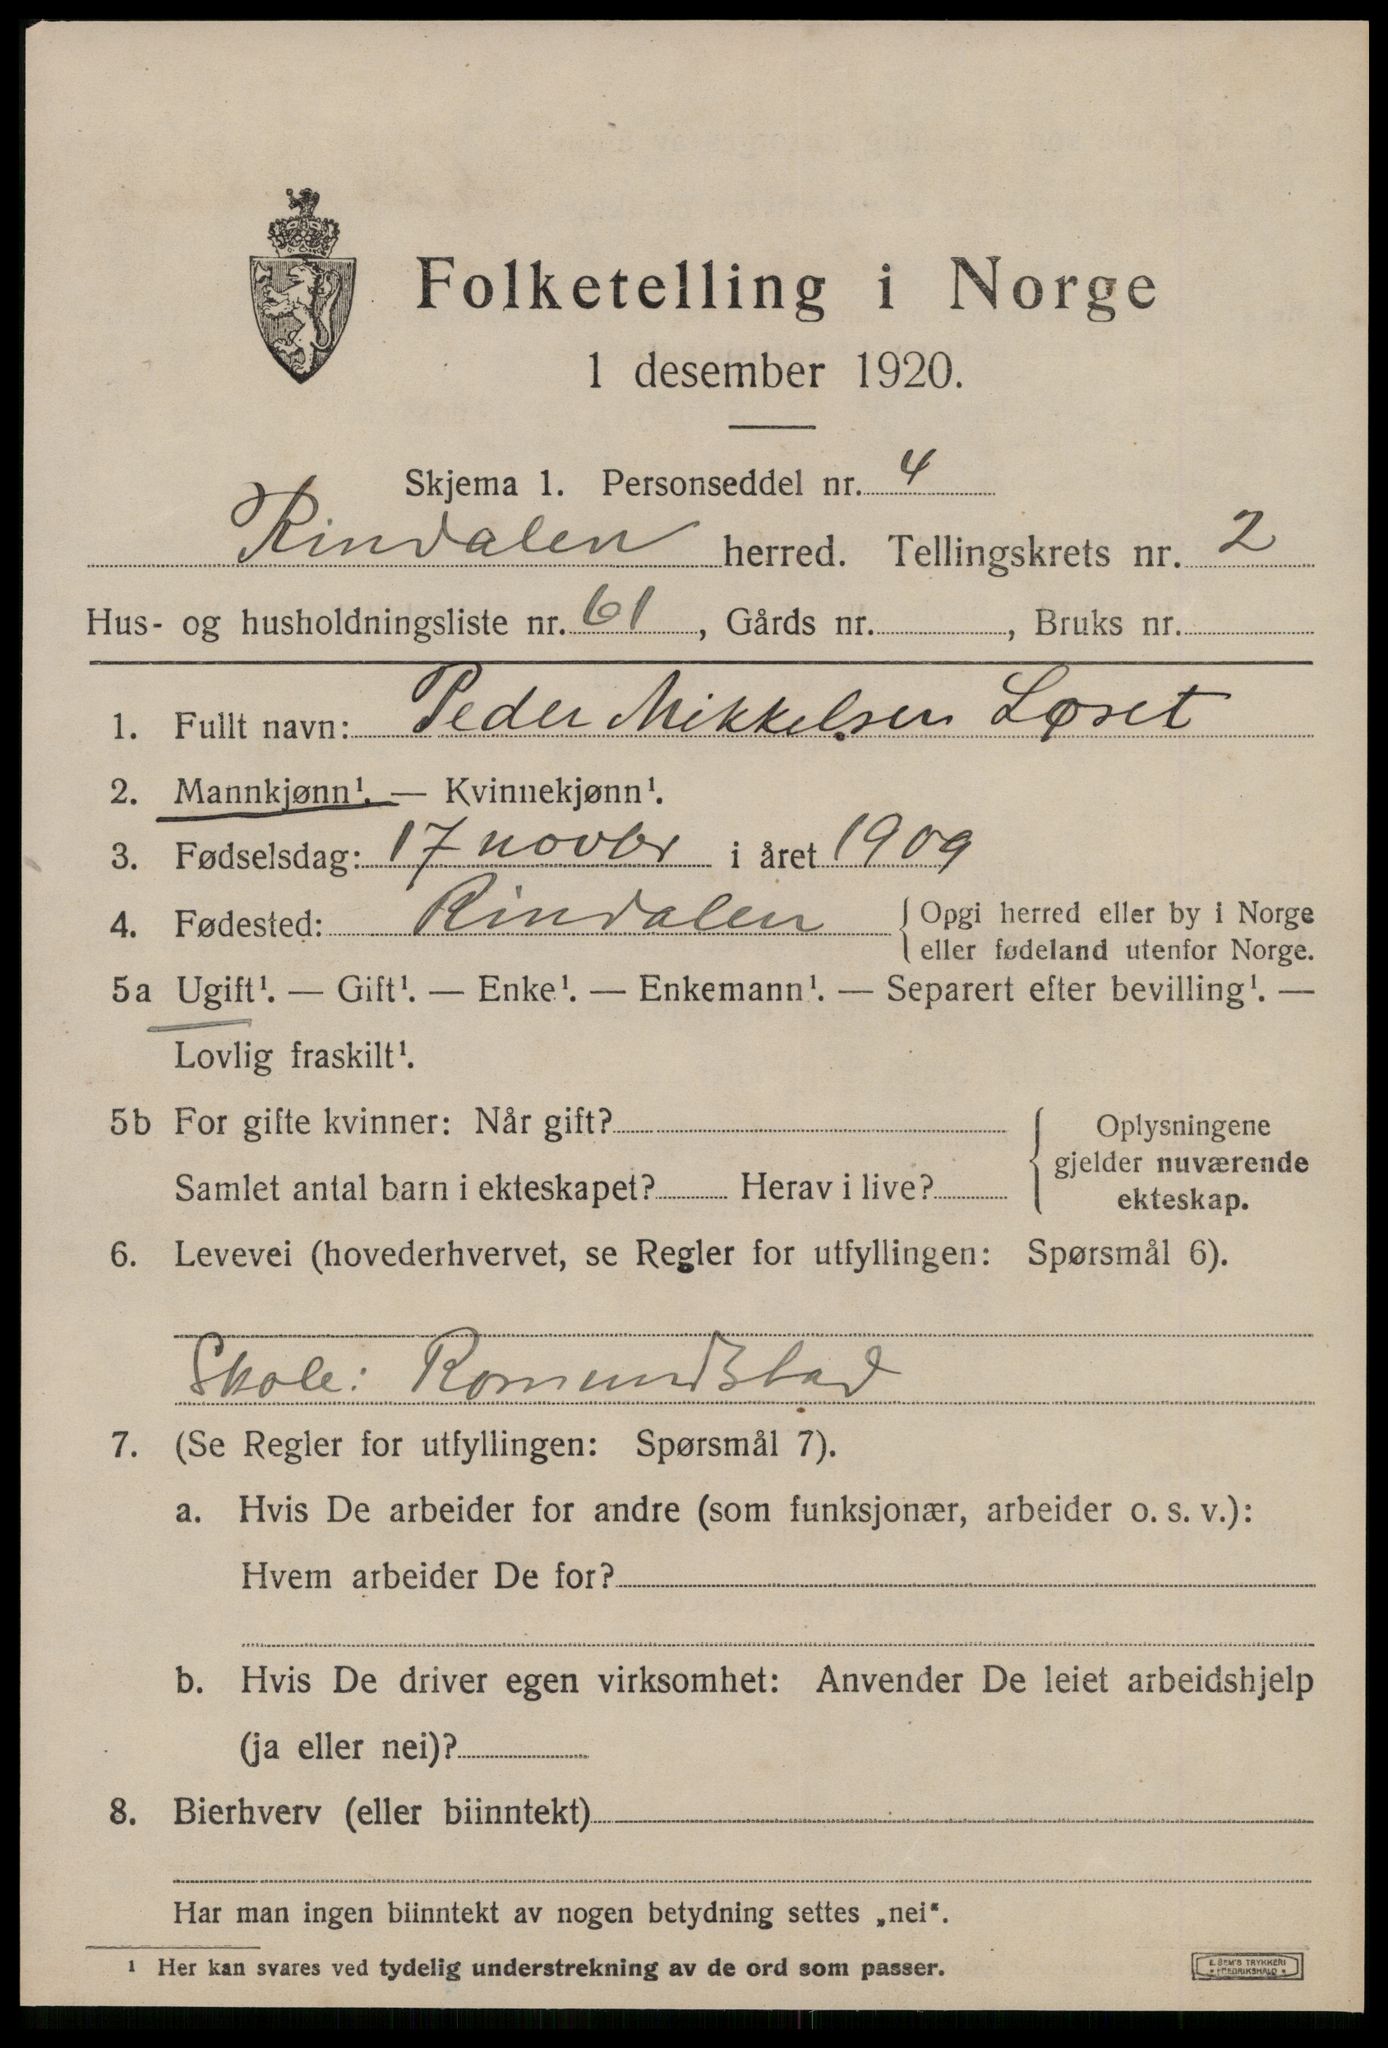 Folketelling i Norge
1 desember 1920.
Skjema 1. Personseddel nr. 4
Rindalen herred. Tellingskrets nr. 2
Hus- og husholdningsliste nr. 61, Gårds nr. , Bruks nr.
1. Fullt navn: Peder Mikkelsen Løset
2. Mannkjønn¹. — Kvinnekjønn¹.
3. Fødselsdag: 17 novbr i året 1909
4. Fødested: Rindalen { Opgi herred eller by i Norge
eller fødeland utenfor Norge.
5a Ugift¹. — Gift¹. — Enke¹. — Enkemann¹. — Separert efter bevilling¹. —
Lovlig fraskilt¹.
5b For gifte kvinner: Når gift?
Samlet antal barn i ekteskapet? Herav i live?
{ Oplysningene
gjelder nuværende
ekteskap.
6. Levevei (hovederhvervet, se Regler for utfyllingen: Spørsmål 6).
Skole: Romundstad
7. (Se Regler for utfyllingen: Spørsmål 7).
a. Hvis De arbeider for andre (som funksjonær, arbeider o. s. v.):
Hvem arbeider De for?
b. Hvis De driver egen virksomhet: Anvender De leiet arbeidshjelp
(ja eller nei)?
8. Bierhverv (eller biinntekt)
Har man ingen biinntekt av nogen betydning settes „nei“.
¹ Her kan svares ved tydelig understrekning av de ord som passer.
E. SEM'S TRYKKERI
FREDRIKSHALD